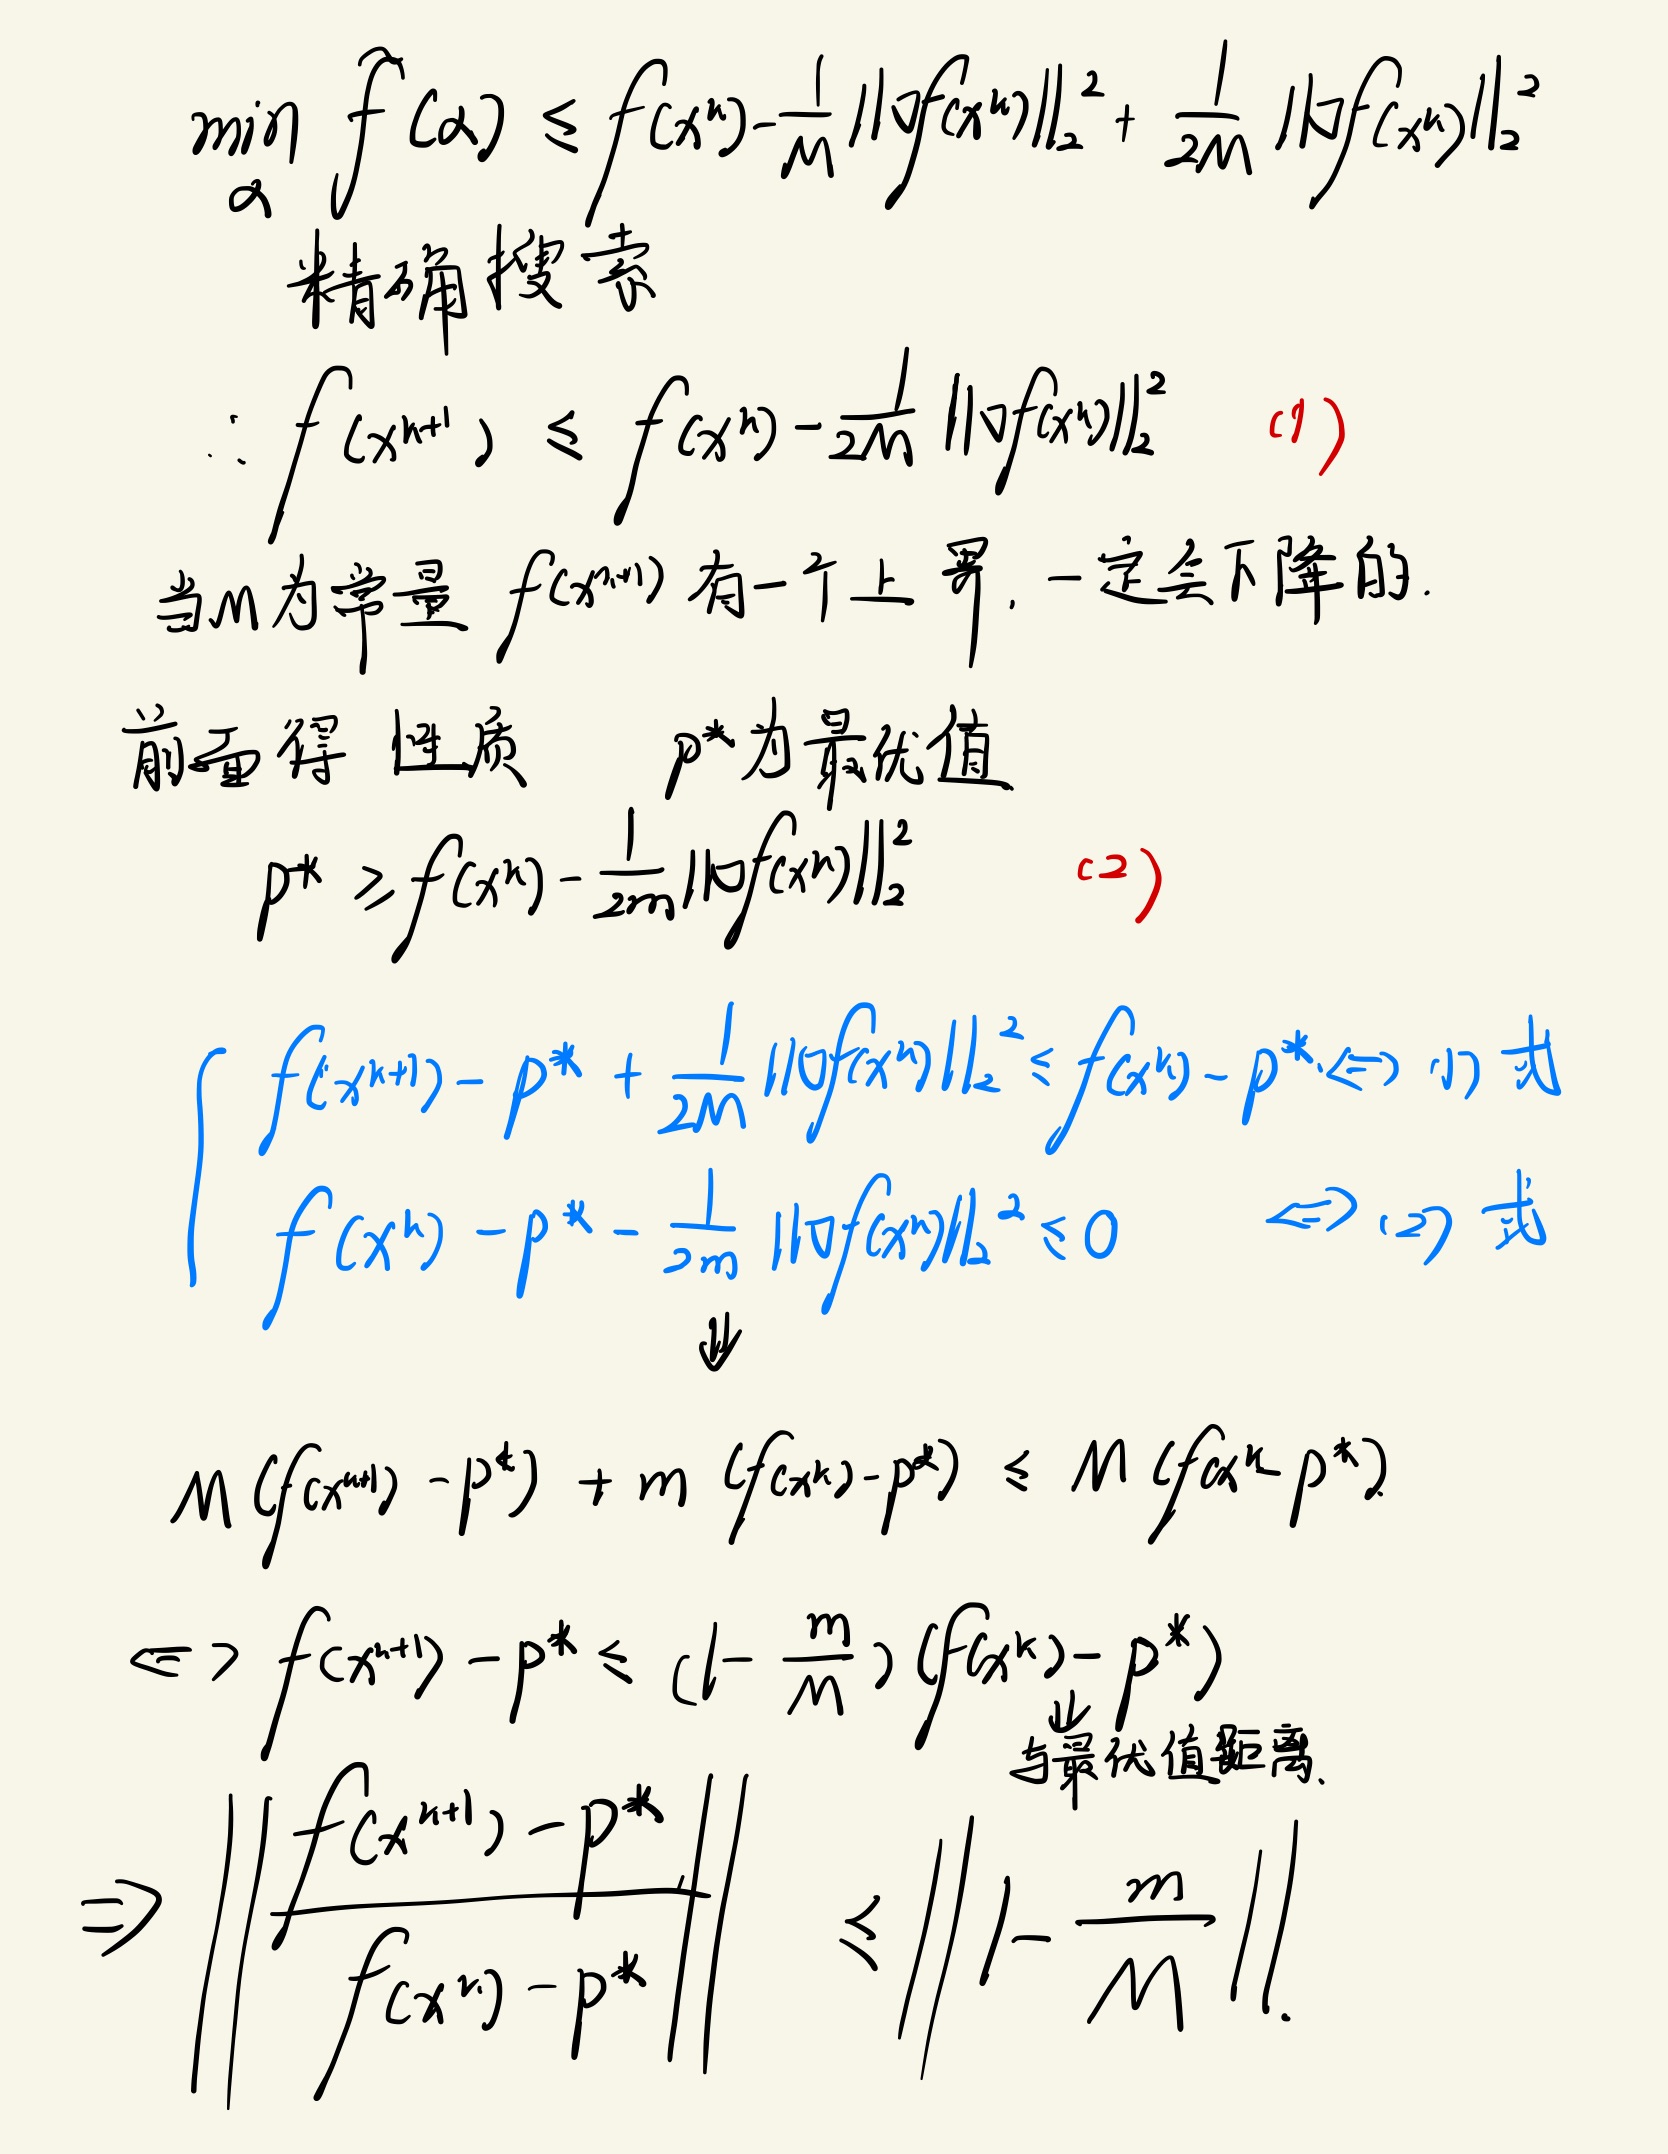 min f̃(α) ≤ f(x^k) - 1/M ||∇f(x^k)||₂² + 1/2M ||∇f(x^k)||₂²
α
精确搜索
∴ f(x^{k+1}) ≤ f(x^k) - 1/2M ||∇f(x^k)||₂² (1)
当M为常量 f(x^{k+1}) 有一个上界. 一定会下降的.
前面得 性质 p*为最优值
p* ≥ f(x^k) - 1/2m ||∇f(x^k)||₂² (2)
{ f(x^{k+1}) - p* + 1/2M ||∇f(x^k)||₂² ≤ f(x^k) - p* <=> (1) 式
f(x^k) - p* - 1/2m ||∇f(x^k)||₂² ≤ 0 <=> (2) 式
⇓
M(f(x^{k+1}) - p*) + m (f(x^k) - p*) ≤ M (f(x^k - p*)
<=> f(x^{k+1}) - p* ≤ (1 - m/M) (f(x^k) - p*)
⇓
与最优值距离.
⇒ || (f(x^{k+1}) - p*) / (f(x^k) - p*) || ≤ || 1 - m/M ||.